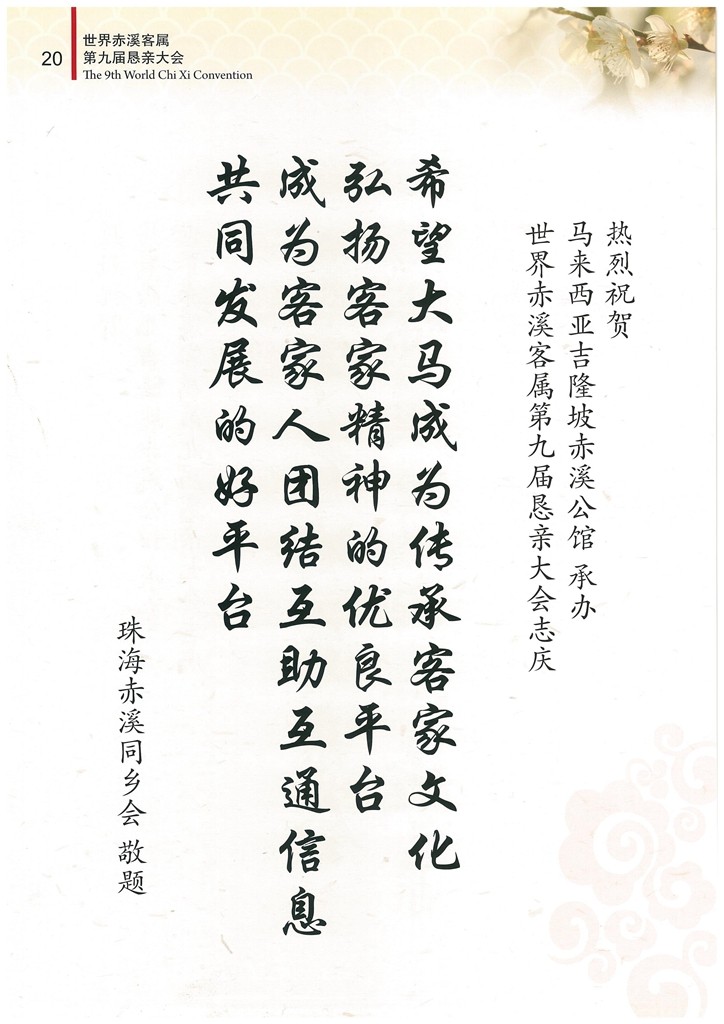 20
世界赤溪客属
第九届恳亲大会
The 9th World Chi Xi Convention
热烈祝贺
马来西亚吉隆坡赤溪公馆 承办
世界赤溪客属第九届恳亲大会志庆
希望大马成为传承客家文化
弘扬客家精神的优良平台
成为客家人团结互助互通信息
共同发展的好平台
珠海赤溪同乡会 敬题